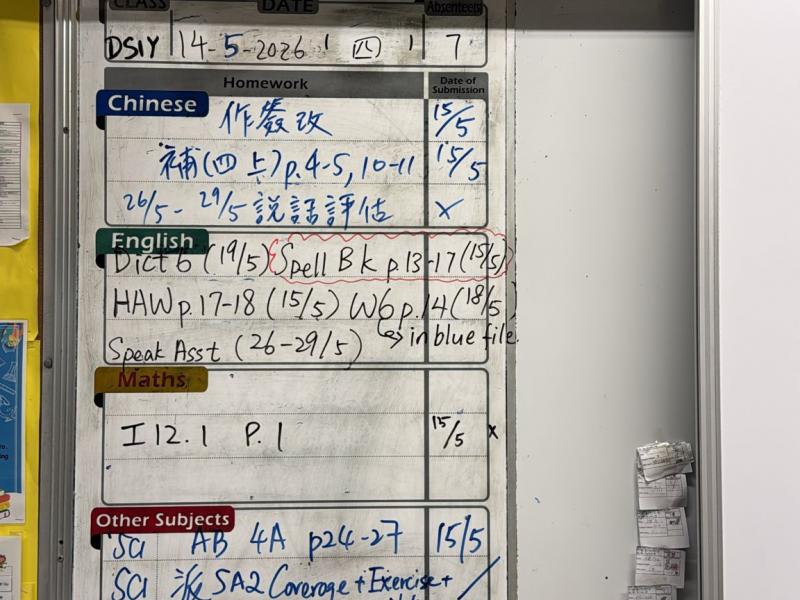 CLASS DATE Absentees
DSIY 14-5-2026 (四) 7
Homework Date of Submission
Chinese
作教改 15/5
補(四上)p.4-5, 10-11 15/5
26/5 - 29/5 說話評估 x
English
Dict 6 (19/5) Spell Bk p13-17(15/5)
HAW p.17-18 (15/5) W6 p.14(18/5)
Speak Asst (26-29/5) → in blue file
Maths
I12.1 P.1 15/5 x
Other Subjects
Sci AB 4A p24-27 15/5
Sci 派 SA2 Coverage + Exercise +